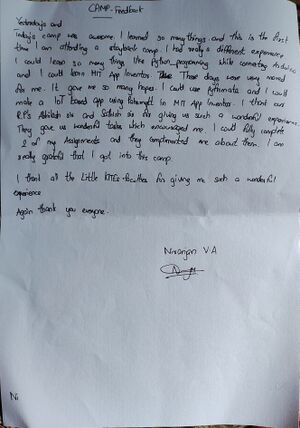 CAMP-Feedback
Yesterdays and
Todays camp was awesome. I learned so many things and this is the first
time I am attending a stayback camp. I had really a different experience.
I could learn so many things like Python programming while connecting to Arduino
and I could learn MIT App Inventor. These days were very moved
for me. It gave me so many hopes. I could use Python and I could
make a IoT based app using in MIT App Inventor. I thank our
RP's Abhilash sir and sir for giving us such a wonderful experience.
They gave us wonderful tasks which encouraged me. I could fully complete
2 of my Assignments and they complimented me about them. I am
really grateful that I got into this camp.
I thank all the Little KITEs for giving me such a wonderful
experience
Again thank you everyone.
Niranjan V.A
Ni